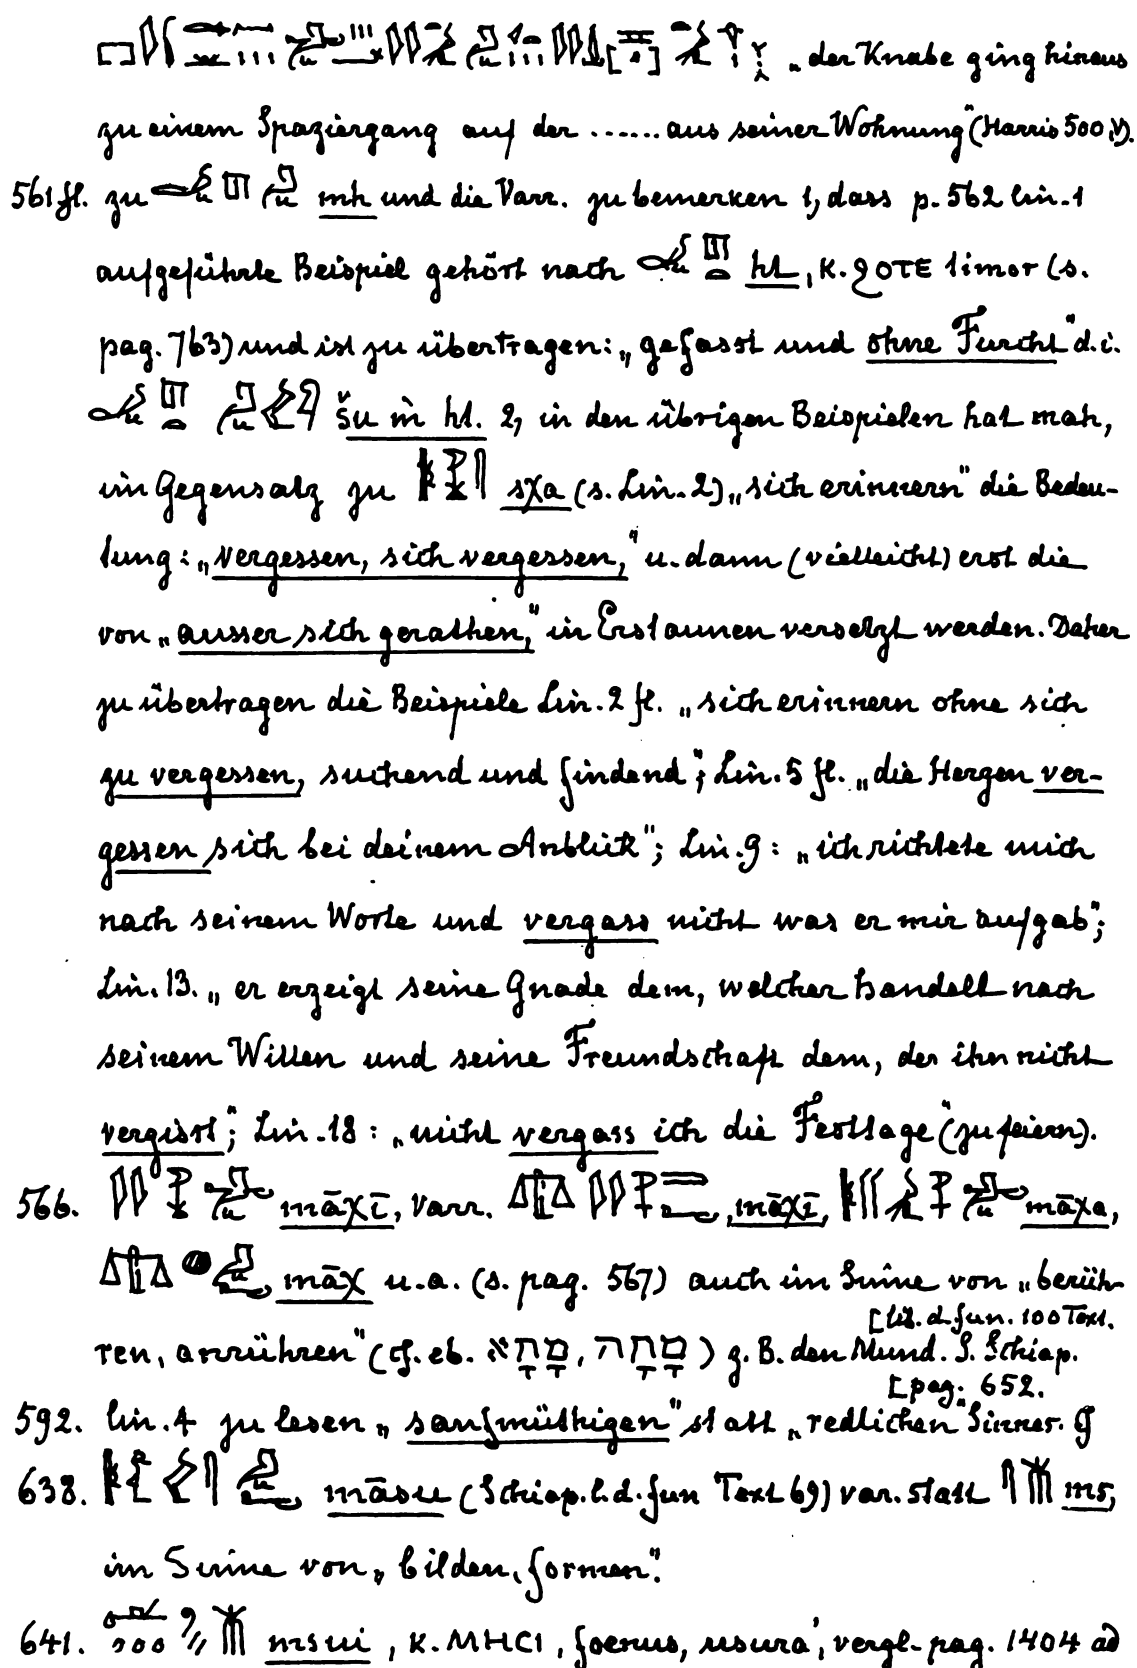 „der Knabe ging hinaus
zu einem Spaziergang auf der ...... aus seiner Wohnung" (Harris 500, V).
561 fl. zu mh und die Varr. zu bemerken 1, dass p. 562 lin. 1
aufgeführte Beispiel gehört nach ht, K. ϩΟΤΕ timor (s.
pag. 763) und ist zu übertragen: „gefasst und ohne Furcht" d. i.
šu m ht. 2, in den übrigen Beispielen hat mah,
im Gegensatz zu sχa (s. Lin. 2) „sich erinnern" die Bedeu-
tung: „vergessen, sich vergessen," u. dann (vielleicht) erst die
von „ausser sich gerathen," in Erstaunen versetzt werden. Daher
zu übertragen die Beispiele Lin. 2 fl. „sich erinnern ohne sich
zu vergessen, suchend und findend"; Lin. 5 fl. „die Herzen ver-
gessen sich bei deinem Anblick"; Lin. 9: „ich richtete mich
nach seinem Worte und vergass nicht was er mir aufgab";
Lin. 13. „er erzeigt seine Gnade dem, welcher handelt nach
seinem Willen und seine Freundschaft dem, der ihn nicht
vergisst"; Lin. 18: „nicht vergass ich die Festtage" (zu feiern).
566. māχī, Varr. māχī, māχa,
māχ u. a. (s. pag. 567) auch im Sinne von „berüh-
ren, anrühren" (cf. eb. מָחָא, מָחָה) z. B. den Mund. S. Schiap.
[lib. d. fun. 100 Text.
[pag. 652.
592. lin. 4 zu lesen „sanfmüthigen" statt „redlichen" Sinnes. Cf
638. māsu (Schiap. l. d. fun Text 69) var. statt ms,
im Sinne von „bilden, formen".
641. msui, K. ΜΗCΙ, foenus, usura, vergl. pag. 1404 ad